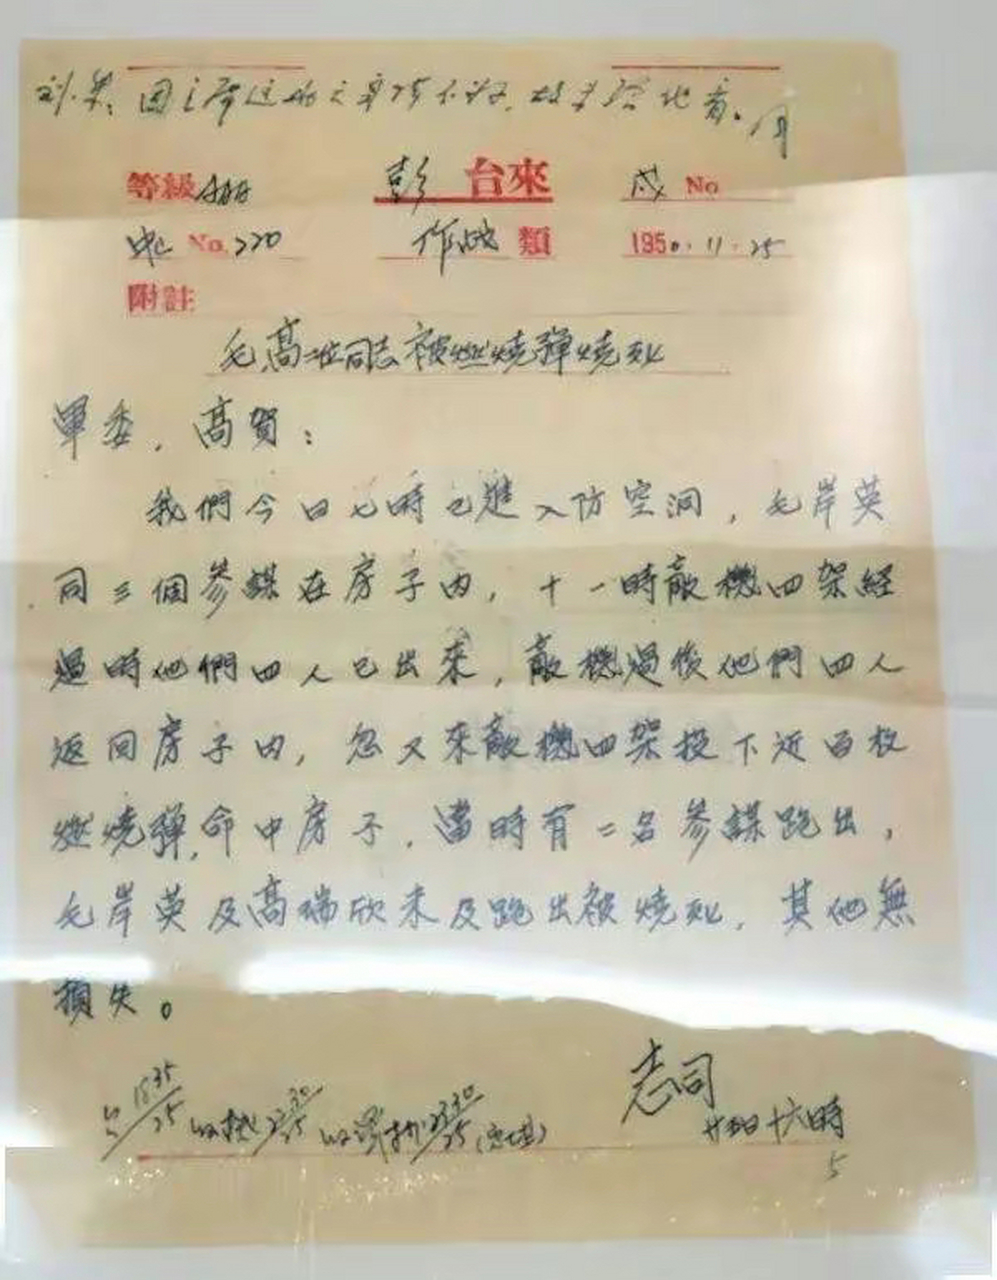 刘、
等級 AAAA 彭 台來 戍 No
No. 220 作战 類 1950.11.25
附註
毛、高二位同志被燃燒彈燒死
軍委，高賀：
我們今日七時已進入防空洞，毛岸英
同三個參謀在房子内，十一時敵機四架經
過時他們四人已出來，敵機過後他們四人
返回房子内，忽又來敵機四架投下近百枚
燃燒彈，命中房子，當時有二名參謀跑出，
毛岸英及高瑞欣未及跑出被燒死，其他無
損失。
志司
廿五日十六時
18 35/25 收 22 30/25 收譯 23 30/25
5